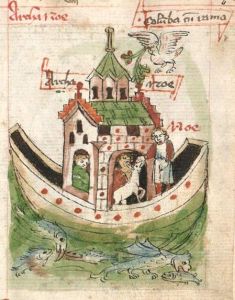 Archa Noe
Columba cum ramo
Archa
Noe
Noe